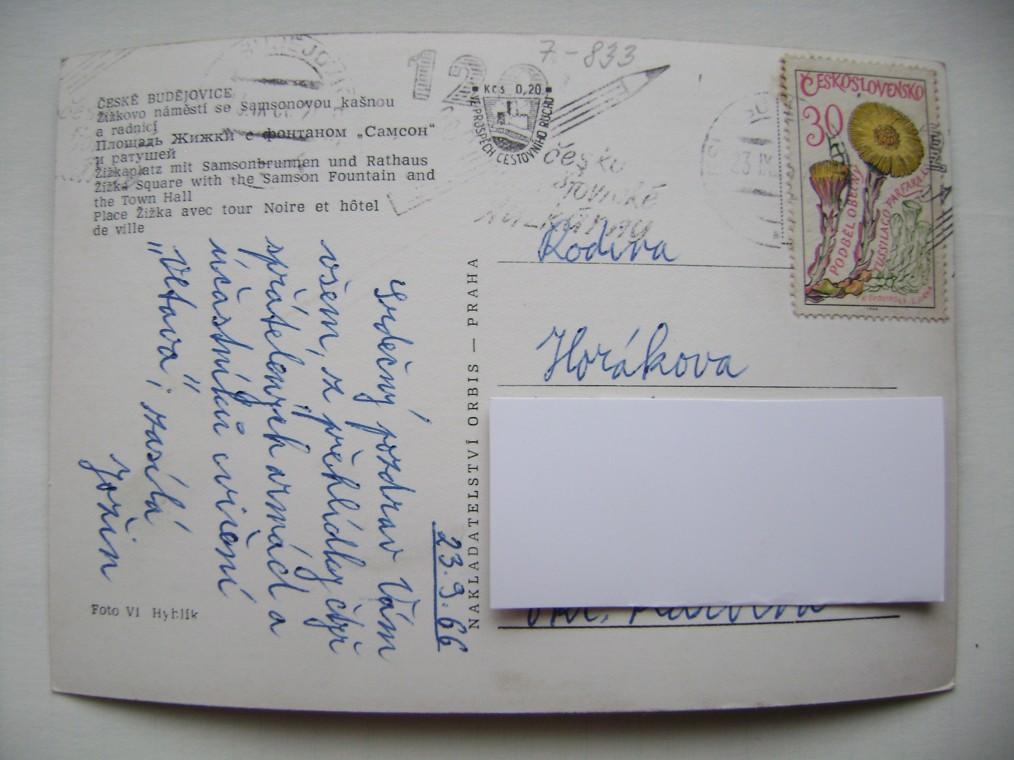 7-833
120
Kčs 0,20
VE PROSPĚCH CESTOVNÍHO RUCHU
ČESKOSLOVENSKO
30
PODBĚL OBECNÝ
TUSSILAGO FARFARA L.
ČESKÉ BUDĚJOVICE
Žižkovo náměstí se Samsonovou kašnou
a radnicí
Площадь Жижки с фонтаном „Самсон“
и ратушей
Žižkaplatz mit Samsonbrunnen und Rathaus
Žižka Square with the Samson Fountain and
the Town Hall
Place Žižka avec tour Noire et hôtel
de ville
23. 9. 66
Srdečný pozdrav Vám
všem, z přehlídky čtyř
spřátelených armád a
účastníků cvičení
„Vltava“, zasílá
Jožin
Foto Vl Hyhlík
NAKLADATELSTVÍ ORBIS — PRAHA
Rodina
Horákova